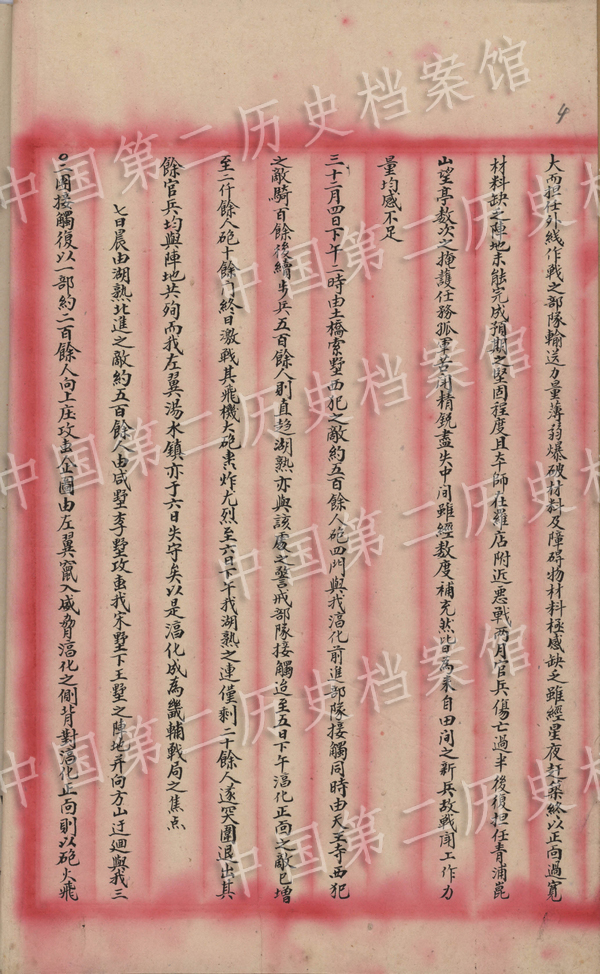 4
大而担任外线作战之部隊輸送力量薄弱爆破材料及障碍物材料極感缺乏雖經星夜赶築終以正面過寬
材料缺乏陣地未能完成預期之堅固程度且本師在羅店附近惡戰两月官兵傷亡過半後復担任青浦崑
山望亭数次之掩護任務孤軍苦闘精銳盡失中间雖經数度補充然皆為来自田间之新兵故戰闘工作力
量均感不足
三十二月四日下午二時由土橋索墅西犯之敵約五百餘人砲四門與我湻化前進部隊接觸同時由天王寺西犯
之敵騎百餘後續步兵五百餘人則直趋湖熟亦與該處之警戒部隊接觸迨至五日下午湻化正面之敵已增
至二仟餘人砲十餘门終日激戰其飛機大砲轟炸尤烈至六日下午我湖熟之連僅剩二十餘人遂突圍退出其
餘官兵均與陣地共殉而我左翼湯水鎮亦于六日失守矣以是湻化成為畿輔戰局之焦点
七日晨由湖熟北進之敵約五百餘人由咸墅李墅攻击我宋墅下王墅之陣地并向方山迂迴與我三
〇二團接觸復以一部約二百餘人向上庄攻击企圖由左翼竄入威脅湻化之側背對湻化正面則以砲火飛
中国第二历史档案馆
中国第二历史档案馆
中国第二历史档案馆
中国第二历史档案馆
中国第二历史档案馆
中国第二历史档案馆